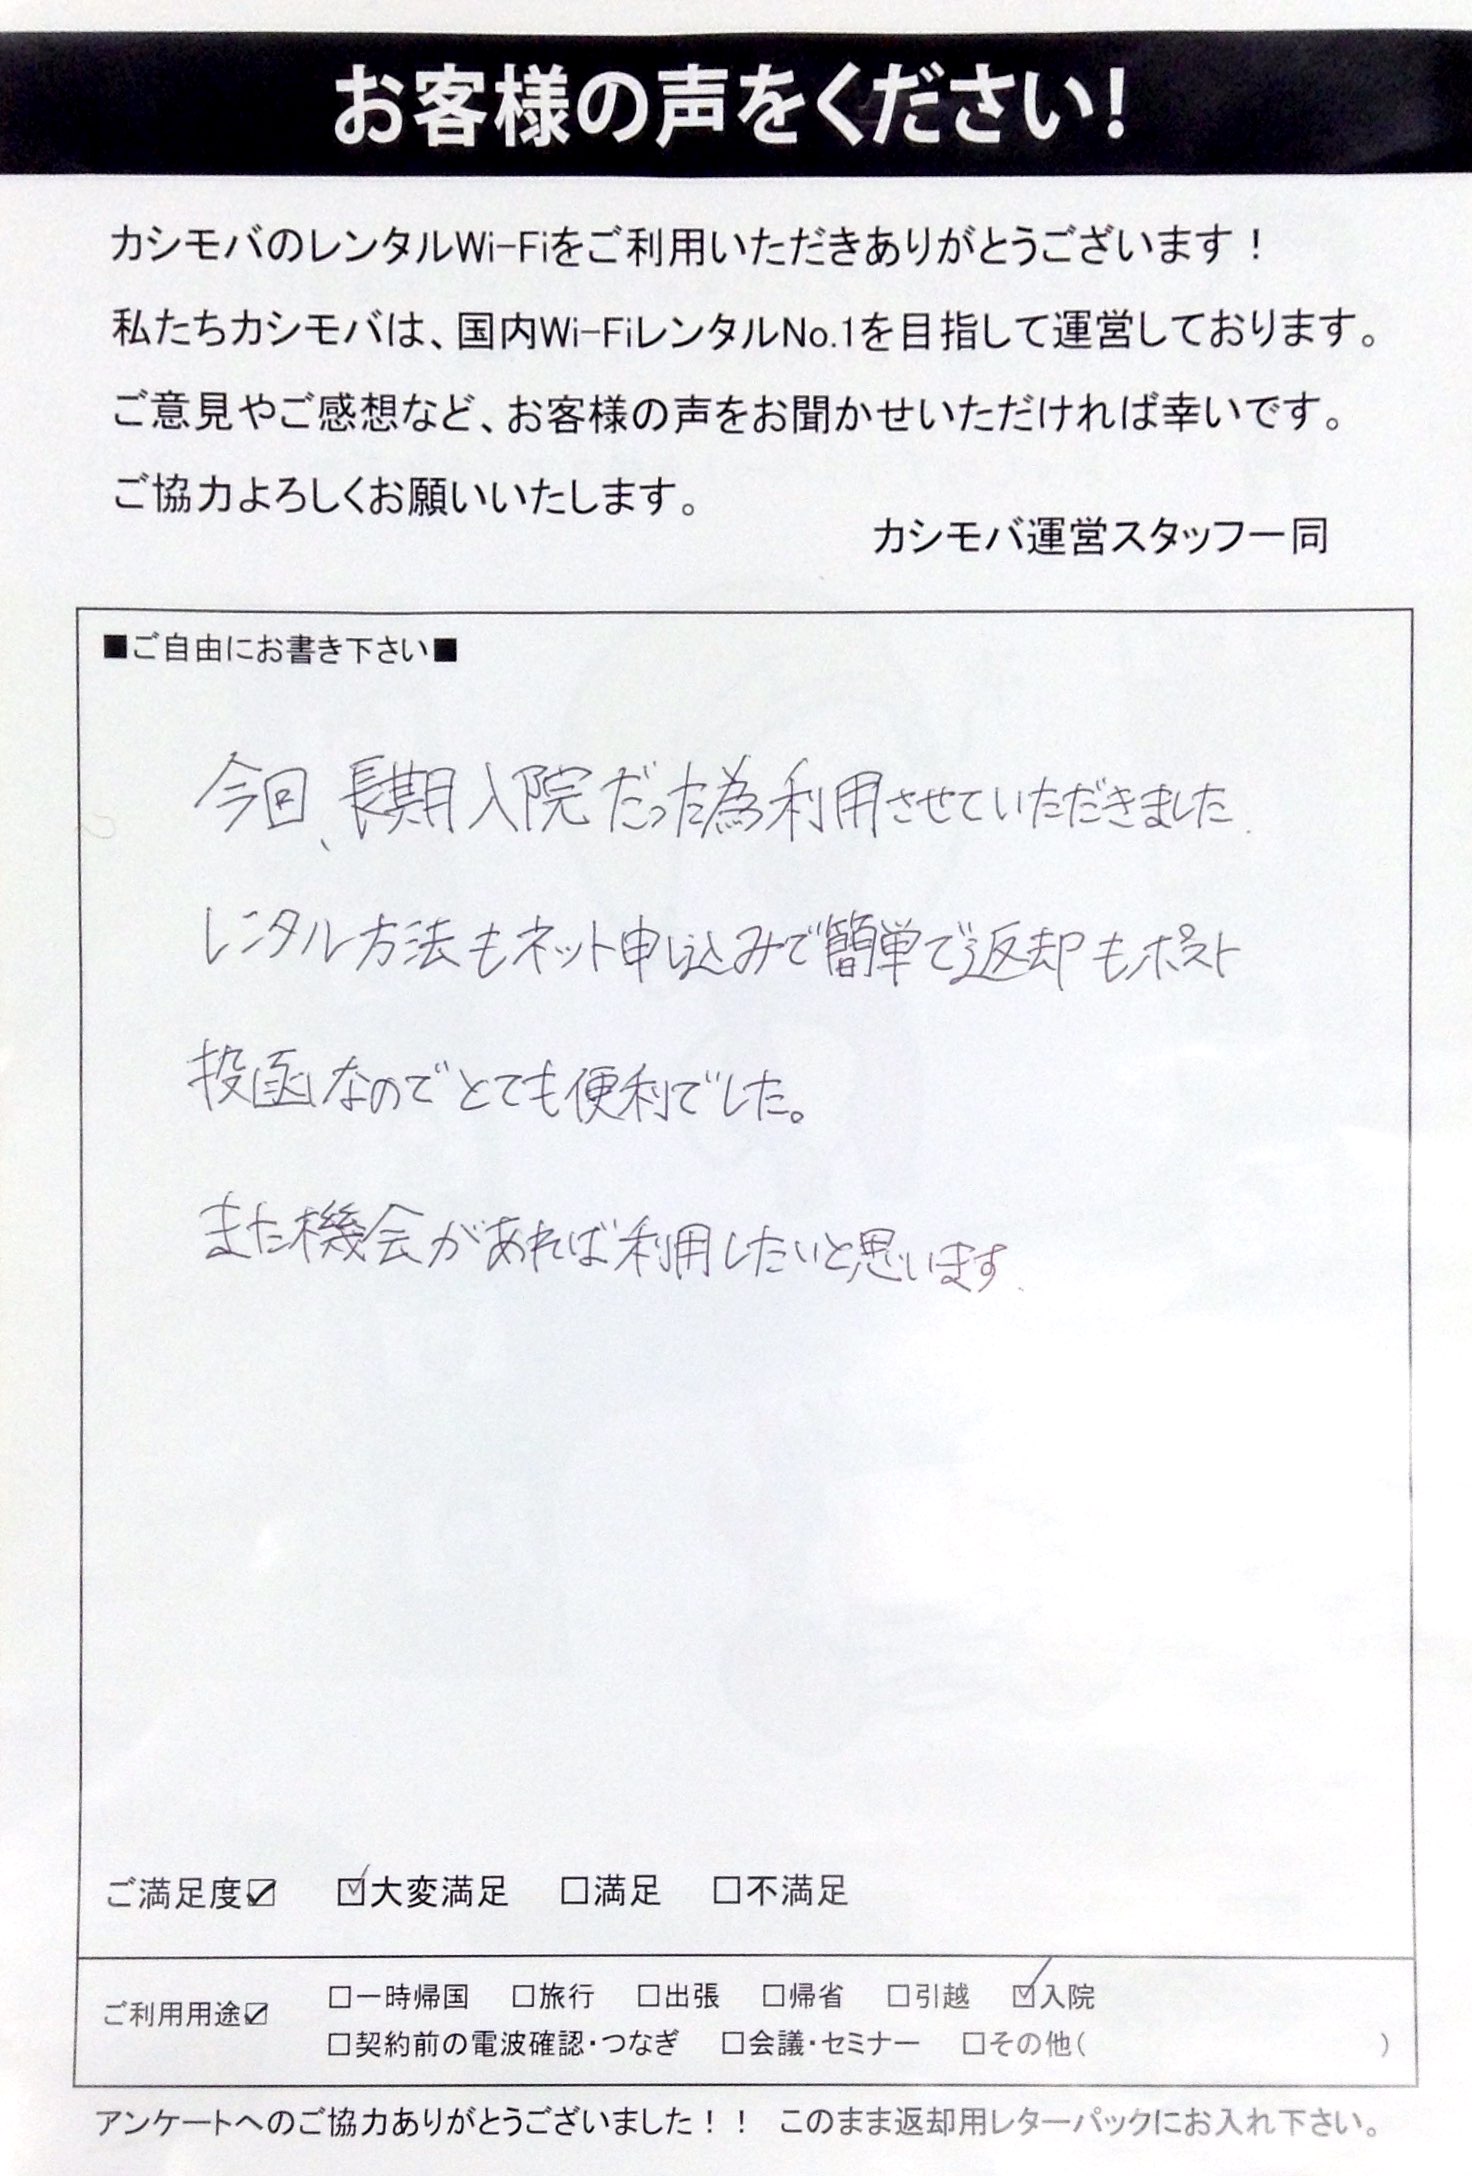 お客様の声をください!
カシモバのレンタルWi-Fiをご利用いただきありがとうございます！
私たちカシモバは、国内Wi-FiレンタルNo.1を目指して運営しております。
ご意見やご感想など、お客様の声をお聞かせいただければ幸いです。
ご協力よろしくお願いいたします。
カシモバ運営スタッフ一同
■ご自由にお書き下さい■
今回、長期入院だった為利用させていただきました.
レンタル方法もネット申し込みで簡単で返却もポスト
投函なのでとても便利でした。
また機会があれば利用したいと思います.
ご満足度☑ ☑大変満足 □満足 □不満足
ご利用用途☑ □一時帰国 □旅行 □出張 □帰省 □引越 ☑入院
□契約前の電波確認・つなぎ □会議・セミナー □その他( )
アンケートへのご協力ありがとうございました！！ このまま返却用レターパックにお入れ下さい。